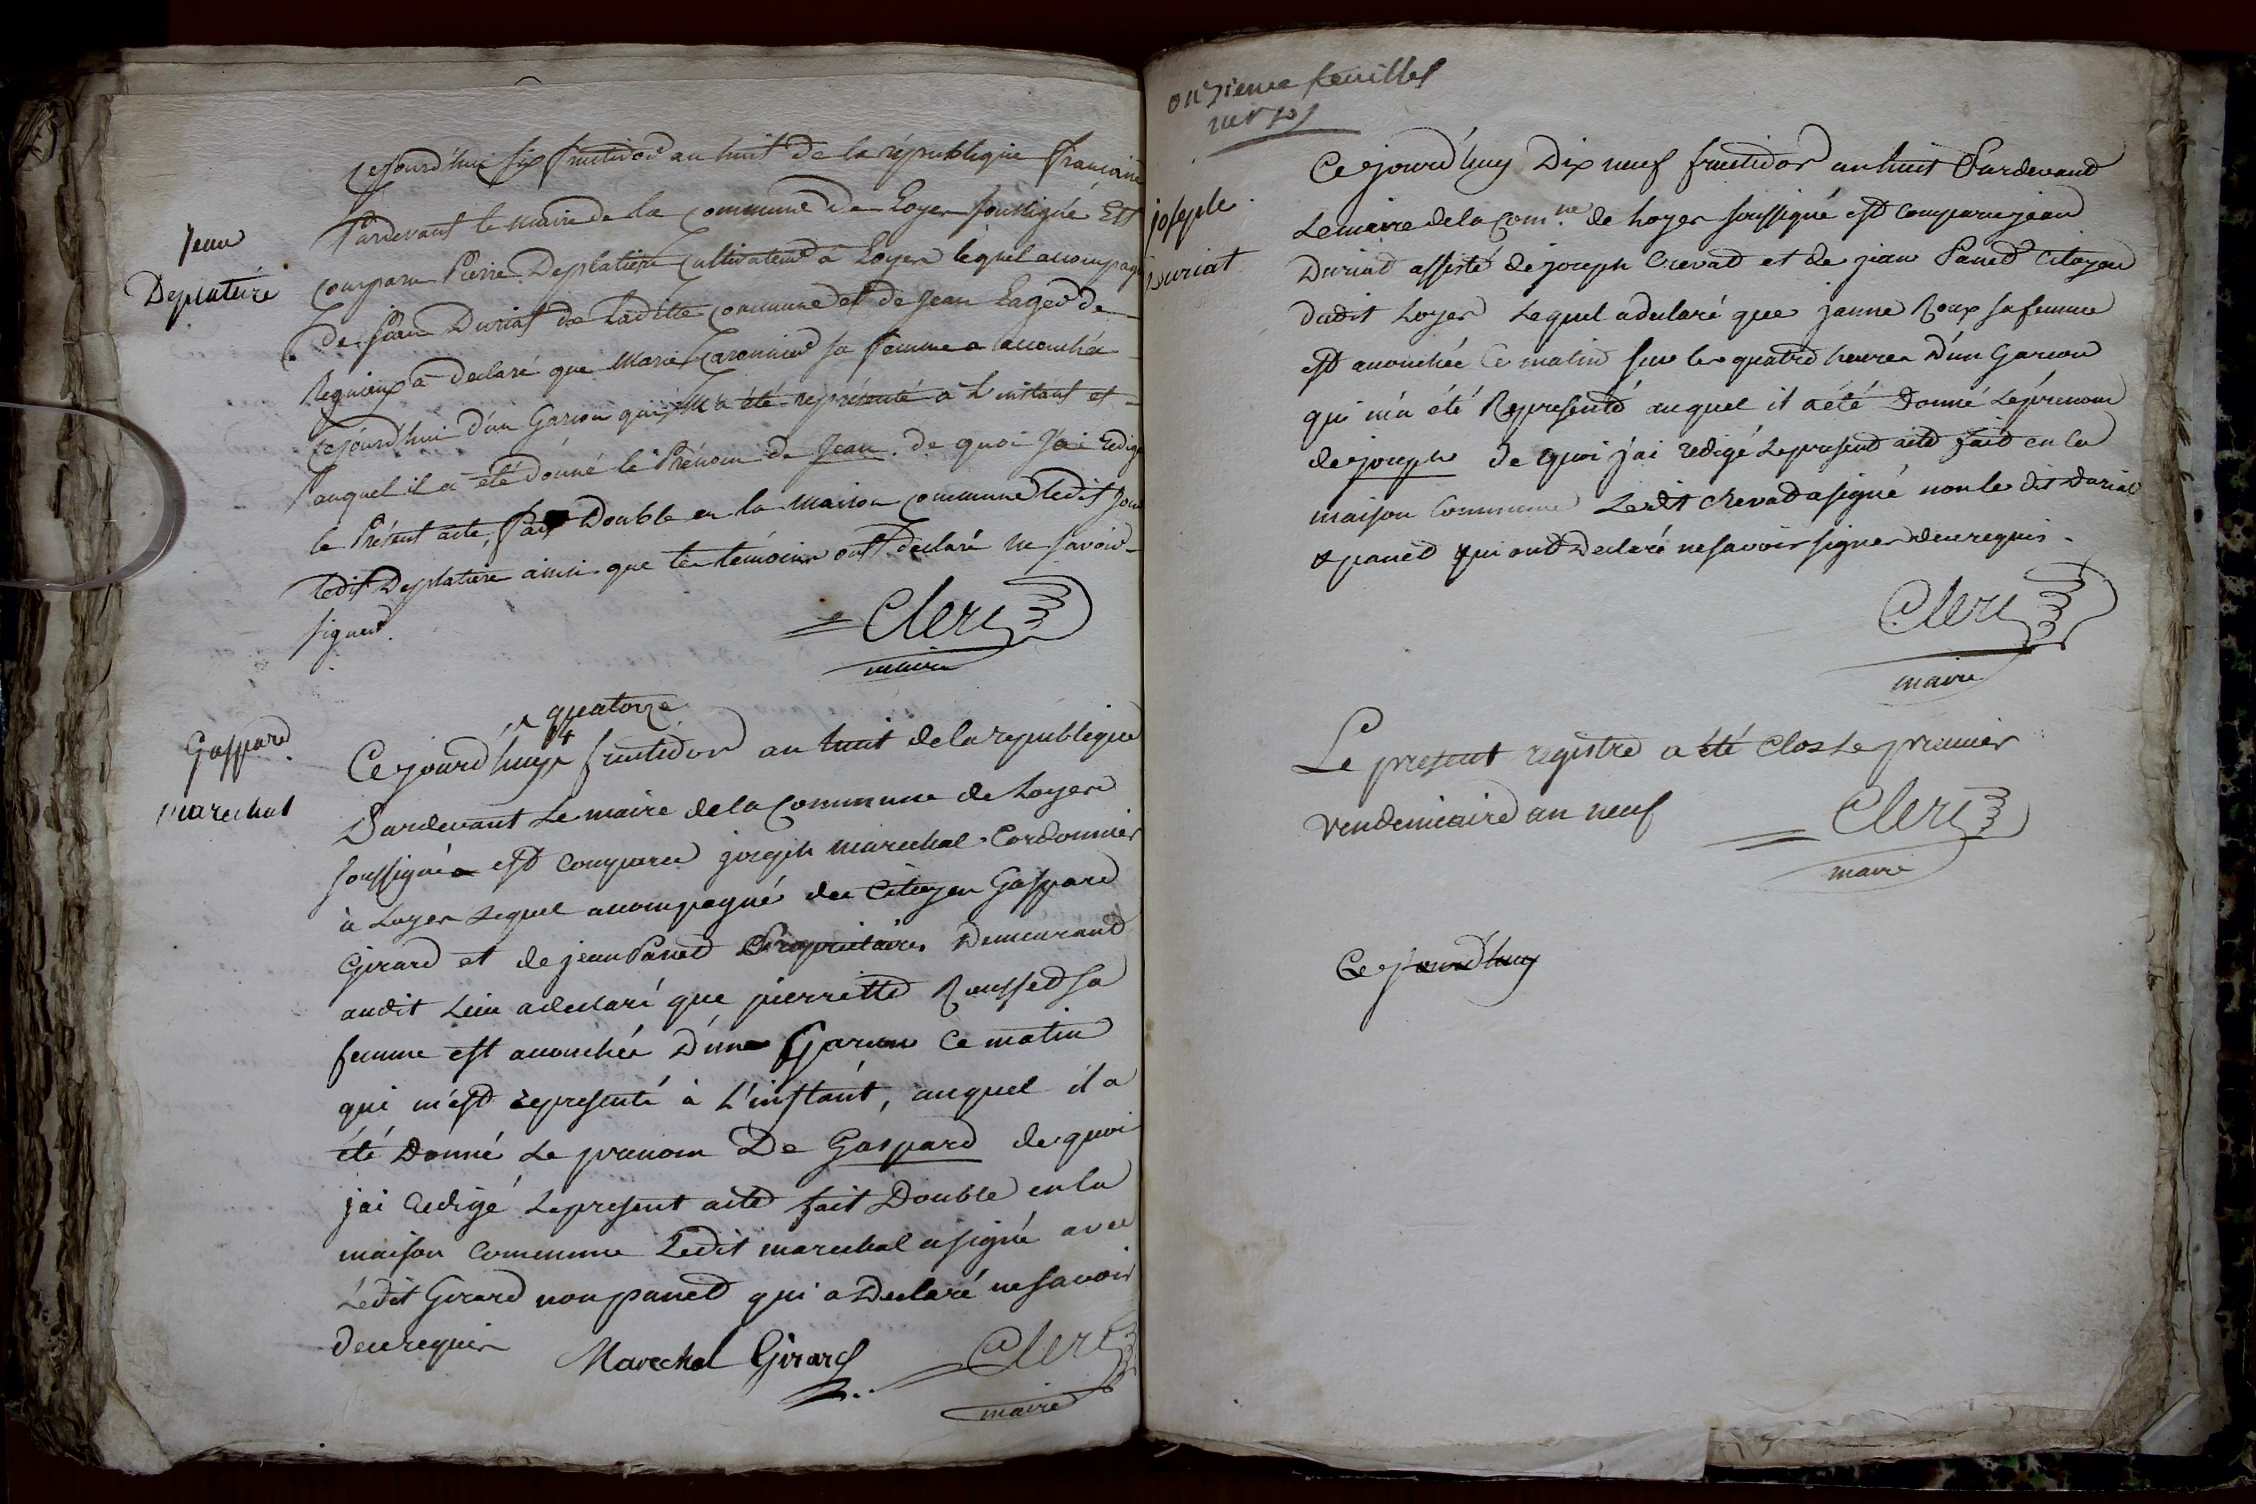 Jean
Deplatière
Cejourd'hui six fructidor an huit de la république francaise
Pardevant le maire de la commune de Loyes soussigné Est
comparu Pierre Deplatière Cultivateur à Loyes lequel accompagné
de Jean Duriat de ladite commune et de Jean Lager de
à declaré que Marie sa femme a accouchée
cejourd'hui d'un Garcon qui m'a été représenté à l'instant et
auquel il a été donné le Prénom de Jean. de quoi J'ai redigé
le Présent acte, fait Double en la maison commune ledit Jour
ledit Deplatière ainsi que les témoins ont declaré ne savoir
signer.
Clerc
maire
Gaspard
marechal
quatorze
Ce jourd'huy fructidor an huit de la republique
Pardevant Le maire de la Commune de Loyes
soussigné est comparu joseph marechal Cordonnier
à Loyes Lequel accompagné du Citoyen Gaspard
Girard et de jean Panet Propriétaires Demeurant
audit Lieu a declaré que pierrette Rousset sa
femme est accouchée D'un Garcon Ce matin
qui m'est representé à L'instant, auquel il a
été Donné Le prenom De Gaspard de quoi
j'ai redigé Le present acte fait Double en la
maison Commune Ledit marechal a signé avec
Ledit Girard non panet qui a Declaré ne savoir
de ce requis
Marechal Girard
Clerc
maire
onzieme feuillet
joseph
Duriat
Ce jourd'huy Dix neuf fructidor an huit Pardevant
Le maire de la Com.ne de Loyes soussigné est comparu jean
Duriat assisté de joseph Crevat et de jean Panet Citoyens
dudit Loyes Lequel a declaré que janne Roux sa femme
est accouchée Ce matin sur les quatre heures D'un Garcon
qui m'a été Representé auquel il a été Donné Le prenom
de joseph de quoi j'ai redigé Le present acte fait en la
maison Commune Ledit Crevat a signé non le dit Duriat
& panet qui ont Declaré ne savoir signer de ce requis.
Clerc
maire
Le present registre a été Clos Le premier
vendemiaire an neuf
Clerc
maire
Ce jourd'huy